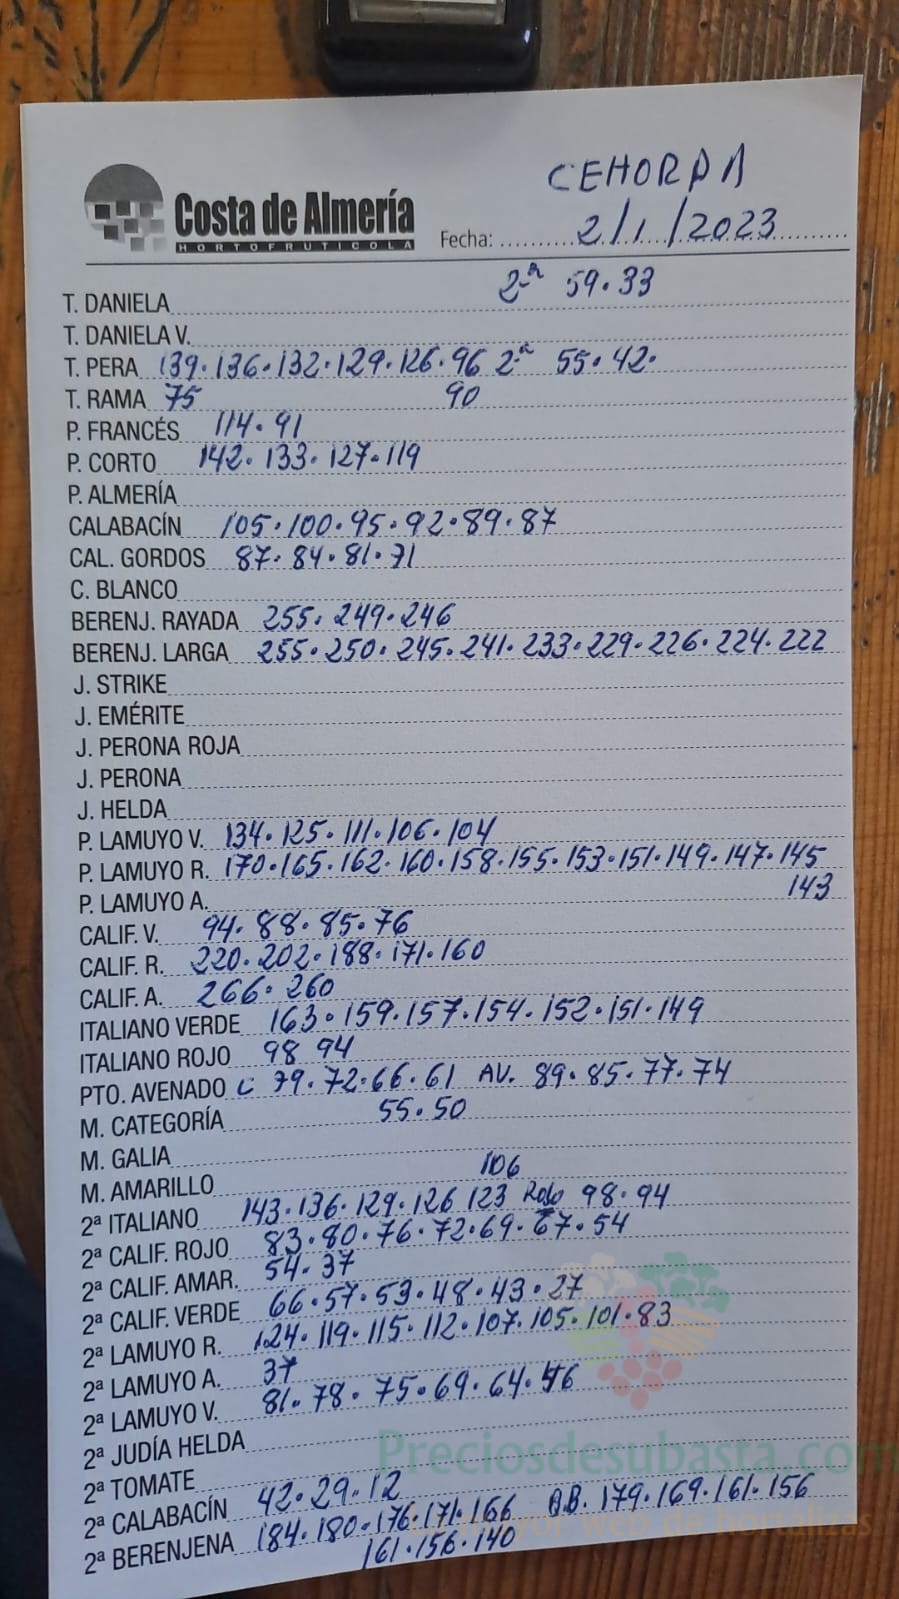 CEHORPA
Costa de Almería
HORTOFRUTICOLA
Fecha: 2/1/2023
T. DANIELA 2ª 59.33
T. DANIELA V.
T. PERA 139.136.132.129.126.96 2ª 55.42.
T. RAMA 75 90
P. FRANCÉS 114.91
P. CORTO 142.133.127.119
P. ALMERÍA
CALABACÍN 105.100.95.92.89.87
CAL. GORDOS 87.84.81.71
C. BLANCO
BERENJ. RAYADA 255.249.246
BERENJ. LARGA 255.250.245.241.233.229.226.224.222
J. STRIKE
J. EMÉRITE
J. PERONA ROJA
J. PERONA
J. HELDA
P. LAMUYO V. 134.125.111.106.104
P. LAMUYO R. 170.165.162.160.158.155.153.151.149.147.145
P. LAMUYO A. 143
CALIF. V. 94.88.85.76
CALIF. R. 220.202.188.171.160
CALIF. A. 266.260
ITALIANO VERDE 163.159.157.154.152.151.149
ITALIANO ROJO 98 94
PTO. AVENADO C 79.72.66.61 AV. 89.85.77.74
M. CATEGORÍA 55.50
M. GALIA
M. AMARILLO 106
2ª ITALIANO 143.136.129.126 123 Rojo 98.94
2ª CALIF. ROJO 83.80.76.72.69.67.54
2ª CALIF. AMAR. 54.37
2ª CALIF. VERDE 66.57.53.48.43.27
2ª LAMUYO R. 124.119.115.112.107.105.101.83
2ª LAMUYO A. 37
2ª LAMUYO V. 81.78.75.69.64.46
2ª JUDÍA HELDA
Preciosdesubasta.com
2ª TOMATE
2ª CALABACÍN 42.29.12
2ª BERENJENA 184.180.176.171.166 A.B. 179.169.161.156
mayor web de hortalizas
161.156.140